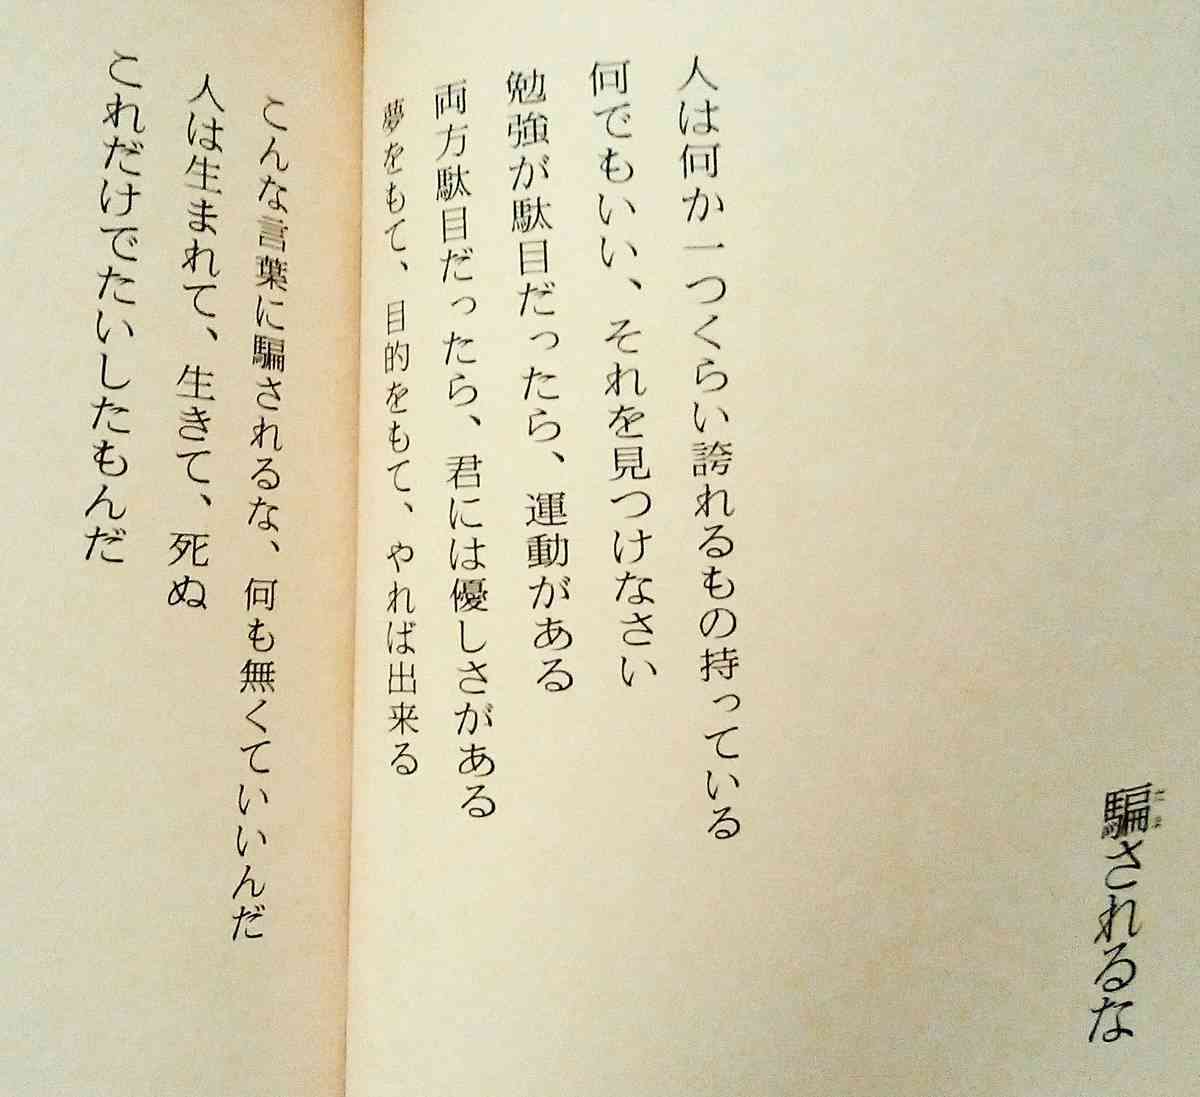 騙されるな
人は何か一つくらい誇れるもの持っている
何でもいい、それを見つけなさい
勉強が駄目だったら、運動がある
両方駄目だったら、君には優しさがある
夢をもて、目的をもて、やれば出来る
こんな言葉に騙されるな、何も無くていいんだ
人は生まれて、生きて、死ぬ
これだけでたいしたもんだ